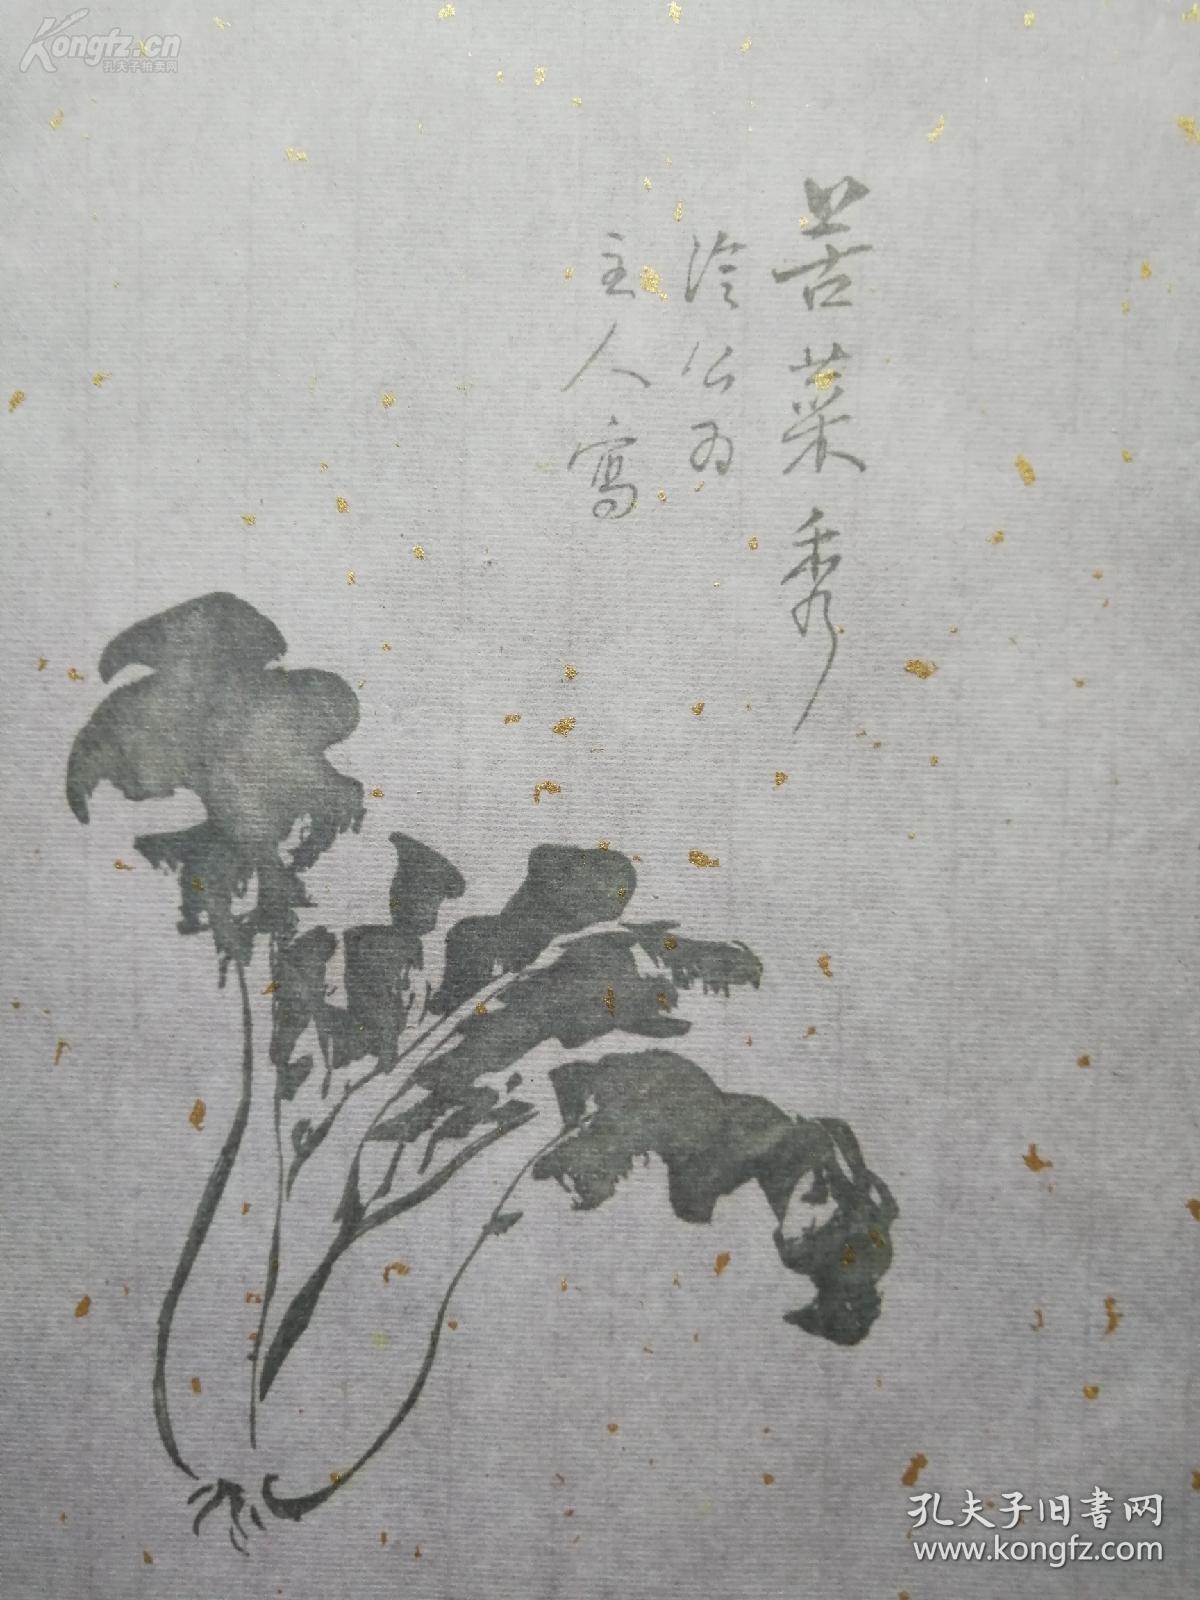 Kongfz.cn
孔夫子拍卖网
苦菜秀
泠公为
主人寫
孔夫子旧书网
www.kongfz.com